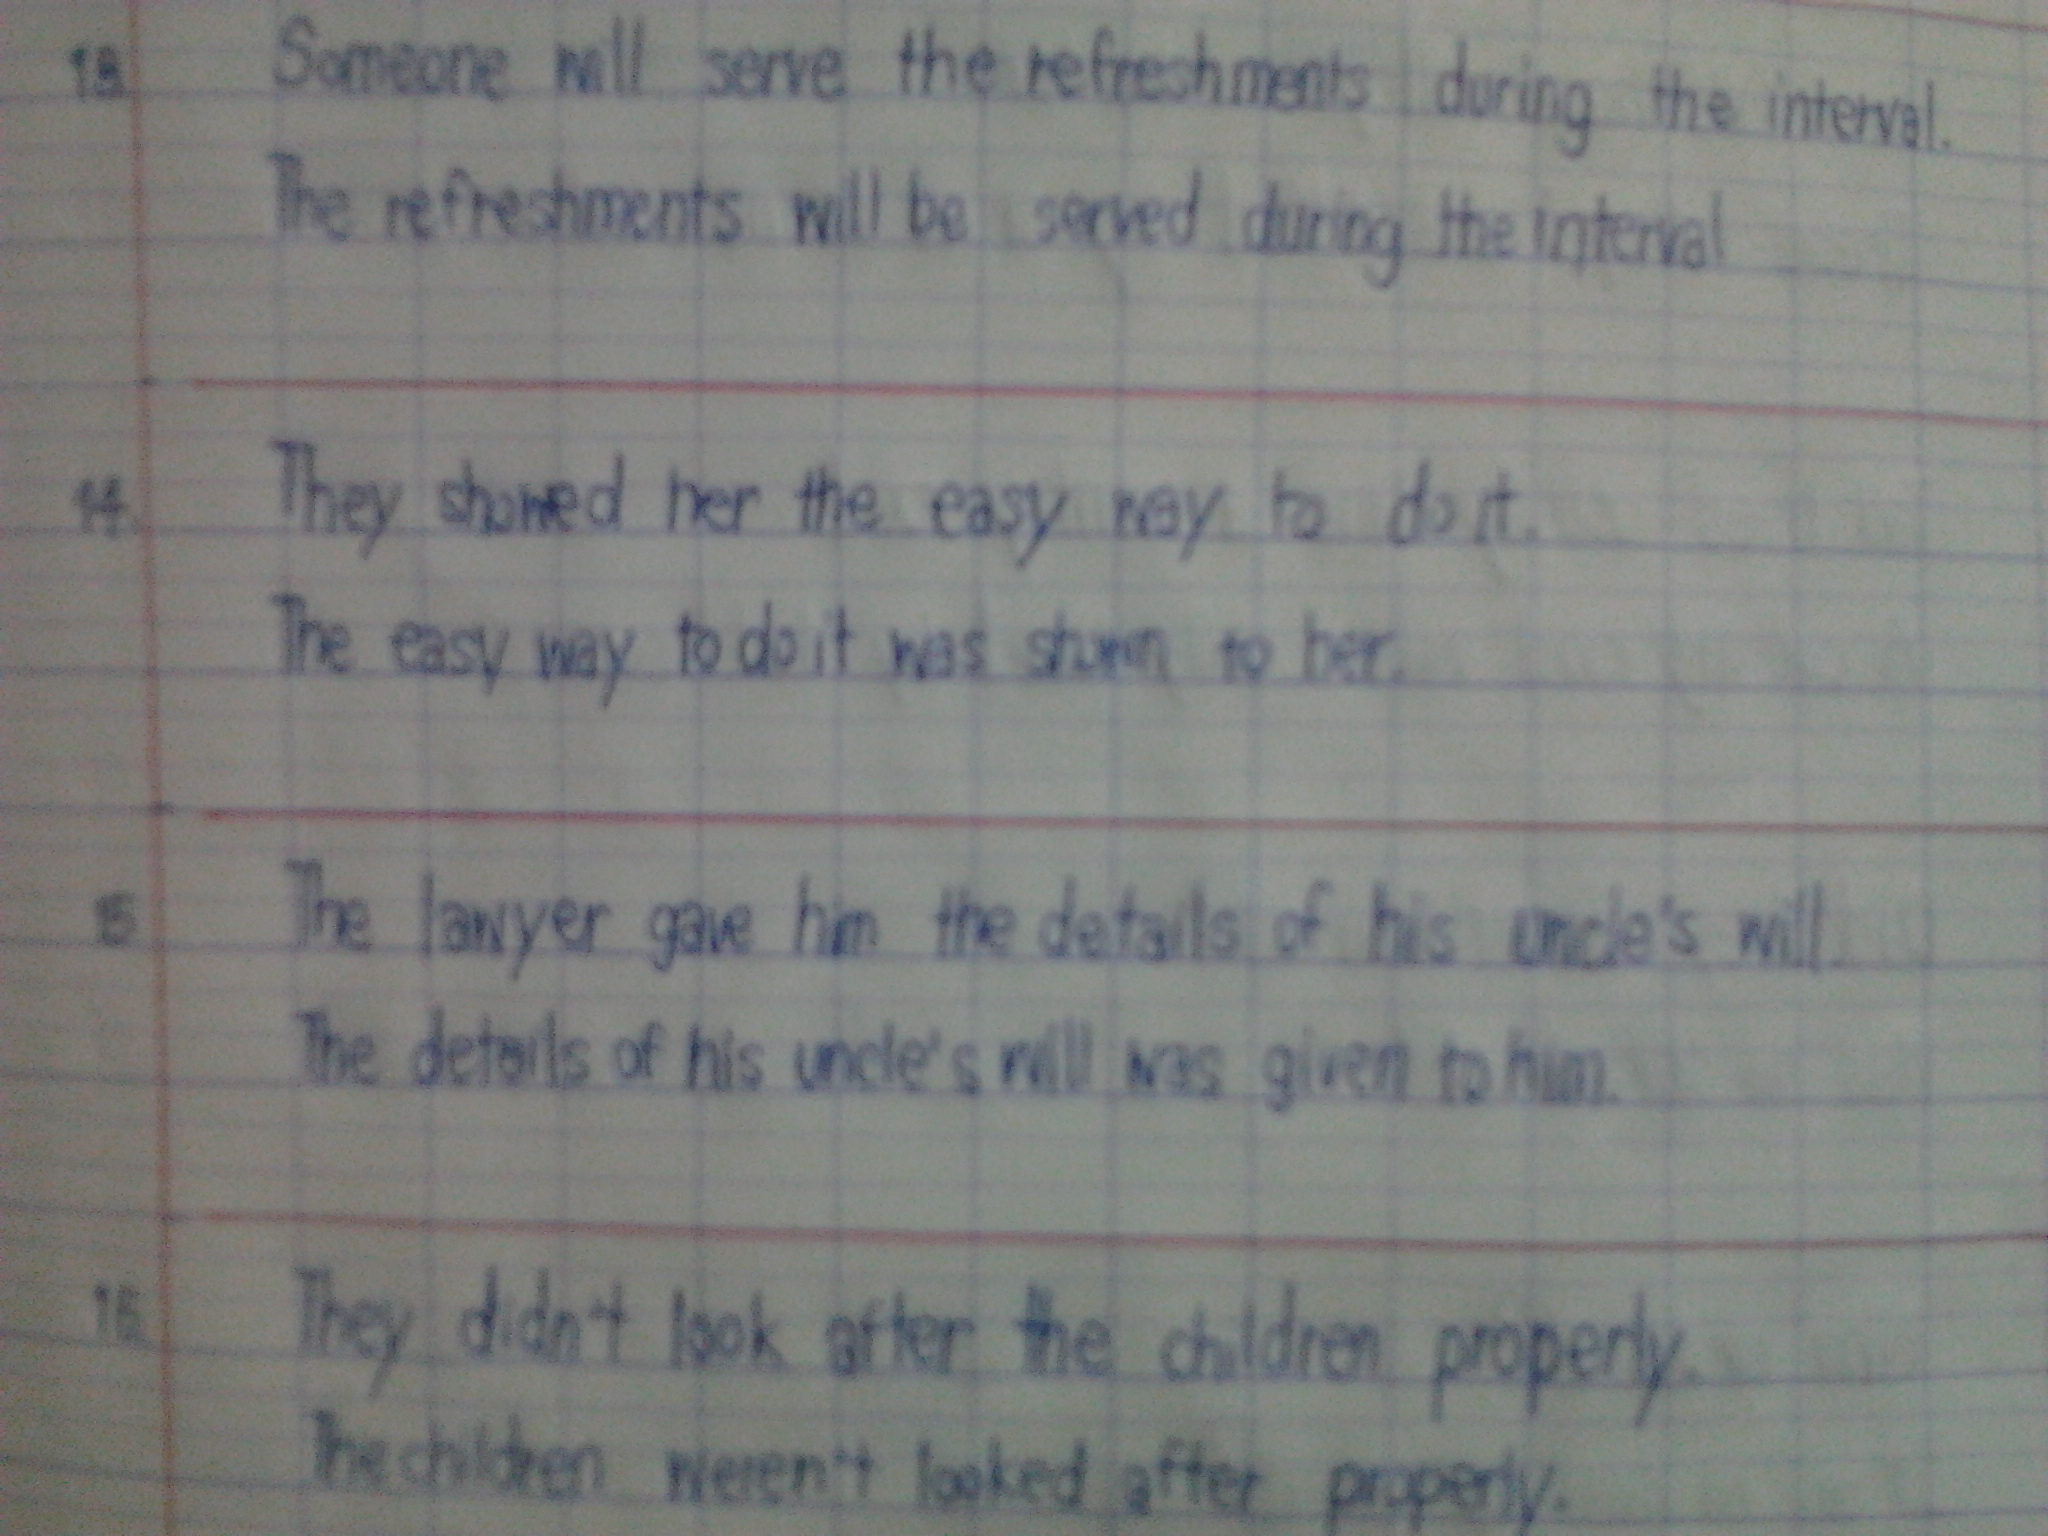 13. Someone will serve the refreshments during the interval.
The refreshments will be served during the interval
14. They showed her the easy way to do it.
The easy way to do it was shown to her.
15 The lawyer gave him the details of his uncle's will.
The details of his uncle's will was given to him.
16. They didn't look after the children properly.
The children weren't looked after properly.